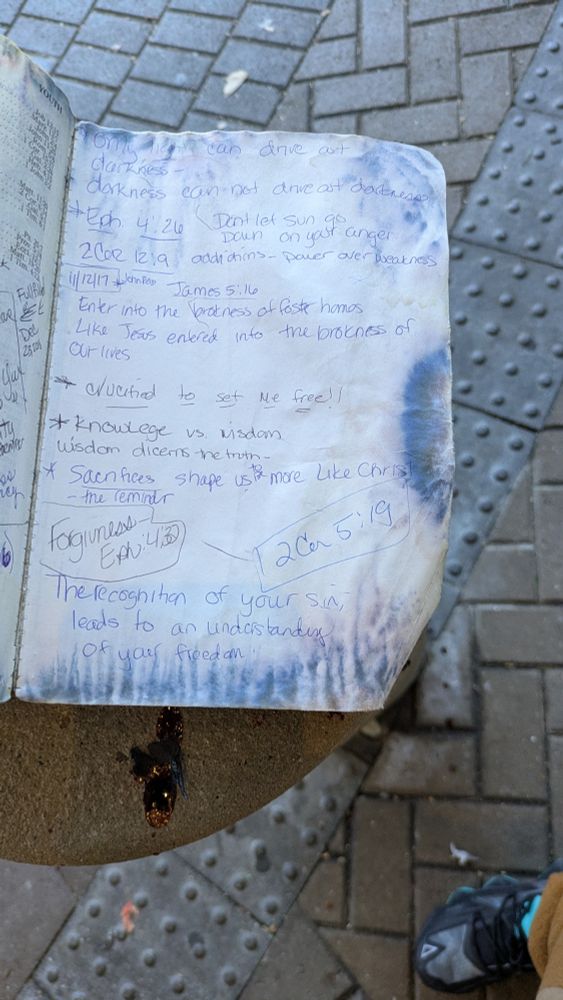 YOUTH
Only light can drive out
darkness -
darkness can not drive out darkness
* Eph. 4:26 Dont let sun go
Down on your anger
2Cor 12:9 addictions - power over weakness
11/12/17 James 5:16
Enter into the brokness of foster homes
Like Jesus entered into the brokness of
our lives
* crucified to set Me free!!
* Knowlege vs. wisdom
wisdom dicerns the truth -
* Sacrifices shape us to more Like Christ
- the remindr
Forgivness
Eph: 4:32
2Cor 5:19
The recognition of your sin,
leads to an understanding
of your freedom.